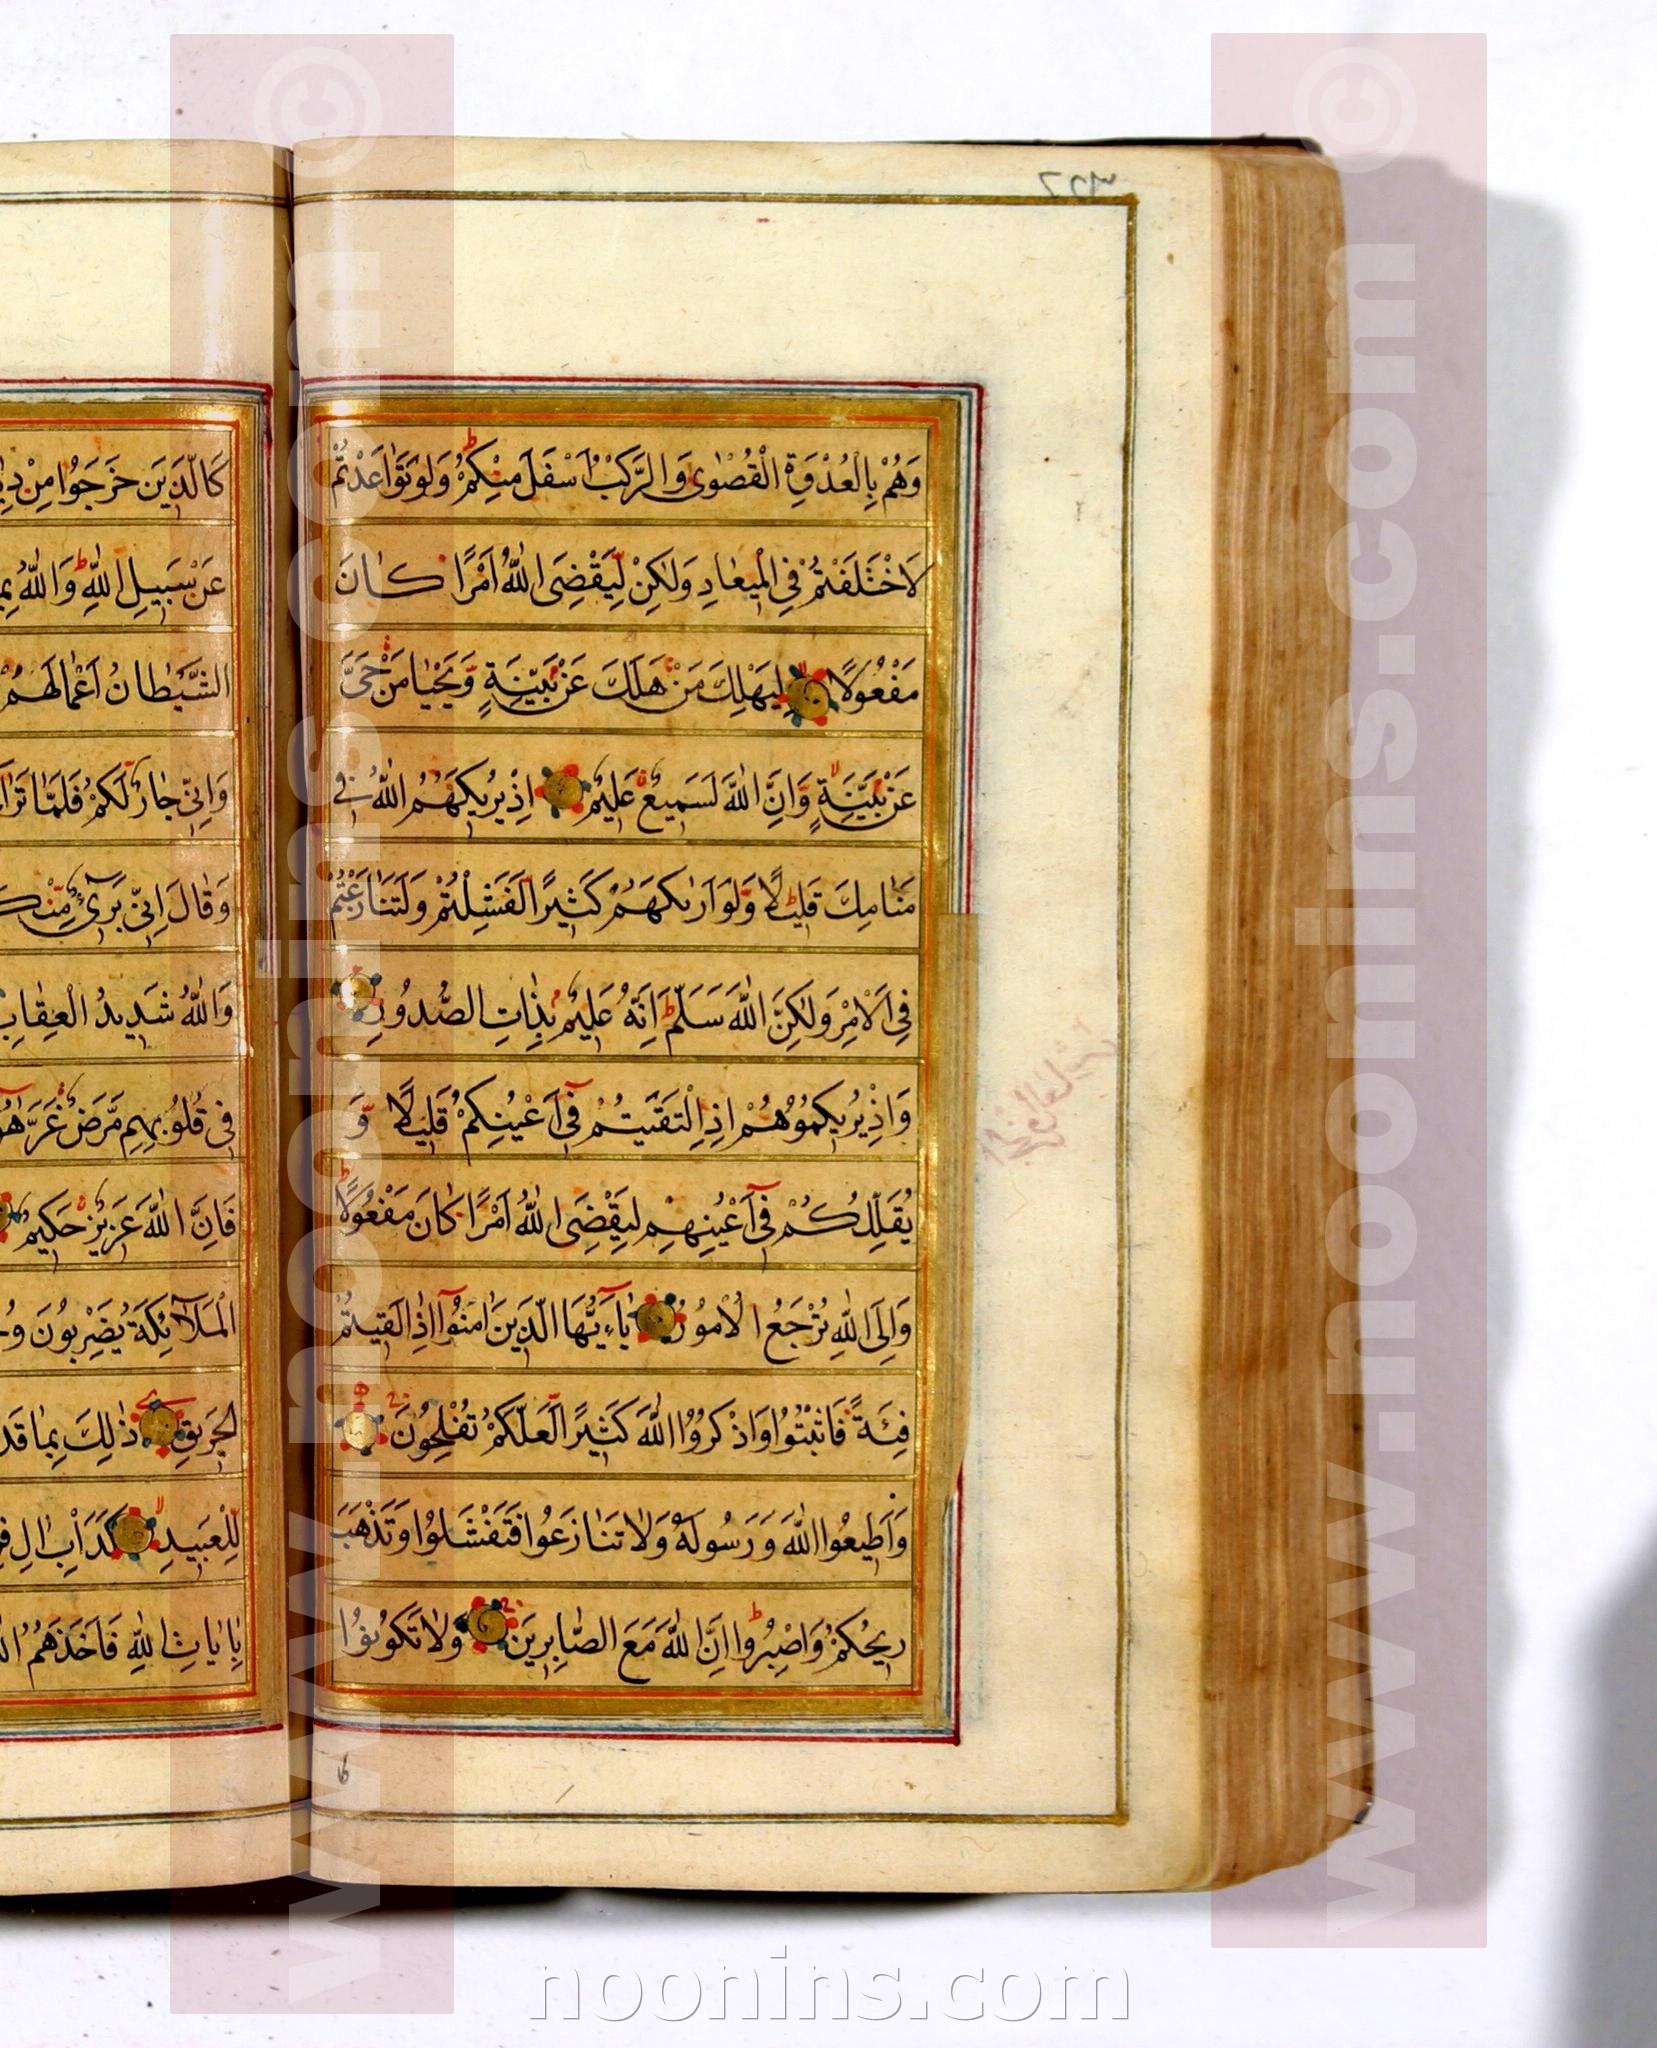 وَهُمْ بِالْعُدْوَةِ الْقُصْوٰى وَالرَّكْبُ اَسْفَلَ مِنْكُمْ وَلَوْ تَوَاعَدْتُمْ
لَاخْتَلَفْتُمْ فِي الْمِيعَادِ وَلٰكِنْ لِيَقْضِىَ اللّٰهُ اَمْرًا كَانَ
مَفْعُولًا لِيَهْلِكَ مَنْ هَلَكَ عَنْ بَيِّنَةٍ وَيَحْيٰا مَنْ حَىَّ
عَنْ بَيِّنَةٍ وَاِنَّ اللّٰهَ لَسَمِيعٌ عَلِيمٌ اِذْ يُرِيكَهُمُ اللّٰهُ فِي
مَنَامِكَ قَلِيلًا وَلَوْ اَرٰىكَهُمْ كَثِيرًا لَفَشِلْتُمْ وَلَتَنَازَعْتُمْ
فِي الْاَمْرِ وَلٰكِنَّ اللّٰهَ سَلَّمَ اِنَّهُ عَلِيمٌ بِذَاتِ الصُّدُورِ
وَاِذْ يُرِيكُمُوهُمْ اِذِ الْتَقَيْتُمْ فِي اَعْيُنِكُمْ قَلِيلًا وَ
يُقَلِّلُكُمْ فِي اَعْيُنِهِمْ لِيَقْضِىَ اللّٰهُ اَمْرًا كَانَ مَفْعُولًا
وَاِلَى اللّٰهِ تُرْجَعُ الْاُمُورُ يَاءَيُّهَا الَّذِينَ اٰمَنُوا اِذَا لَقِيتُمْ
فِئَةً فَاثْبُتُوا وَاذْكُرُوا اللّٰهَ كَثِيرًا لَعَلَّكُمْ تُفْلِحُونَ
وَاَطِيعُوا اللّٰهَ وَرَسُولَهُ وَلَا تَنَازَعُوا فَتَفْشَلُوا وَتَذْهَبَ
رِيحُكُمْ وَاصْبِرُوا اِنَّ اللّٰهَ مَعَ الصَّابِرِينَ وَلَا تَكُونُوا
كَالَّذِينَ خَرَجُوا مِنْ
عَنْ سَبِيلِ اللّٰهِ وَاللّٰهُ
الشَّيْطَانُ اَعْمَالَهُمْ
وَاِنِّي جَارٌ لَكُمْ فَلَمَّا
وَقَالَ اِنِّي بَرِيءٌ
وَاللّٰهُ شَدِيدُ الْعِقَابِ
فِي قُلُوبِهِمْ مَرَضٌ غَرَّ
فَاِنَّ اللّٰهَ عَزِيزٌ حَكِيمٌ
الْمَلَآئِكَةُ يَضْرِبُونَ
الْحَرِيقِ ذٰلِكَ بِمَا
لِلْعَبِيدِ كَدَاْبِ اٰلِ
بِاٰيَاتِ اللّٰهِ فَاَخَذَهُمُ
www.noonins.com ©
www.noonins.com ©
noonins.com